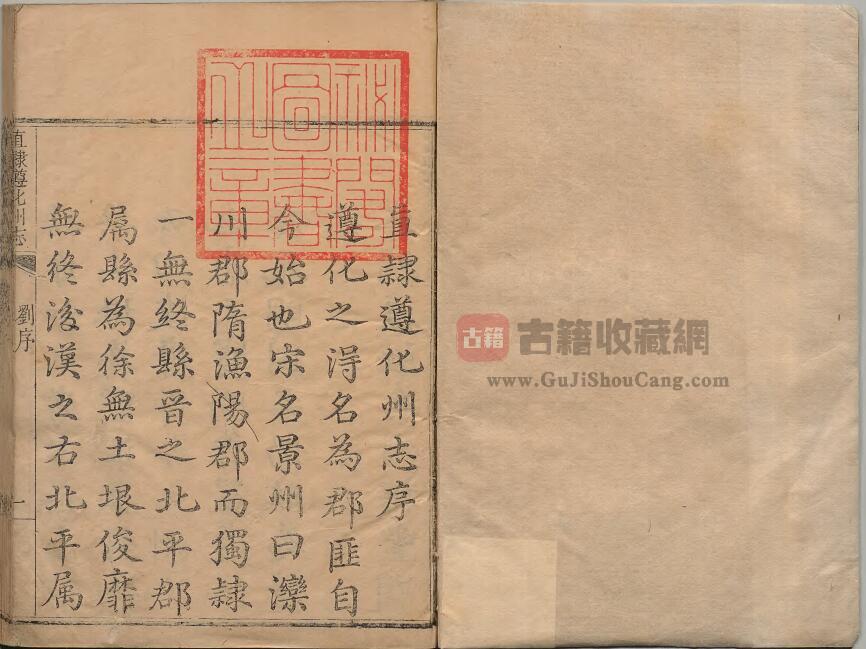 直隸遵化州志序
遵化之得名為郡匪自
今始也宋名景州曰灤
川郡隋漁陽郡而獨隸
一無終縣晉之北平郡
属縣為徐無土垠俊靡
無終後漢之右北平属
直隸遵化州志
劉序
一
古籍
古籍收藏網
www.GuJiShouCang.com